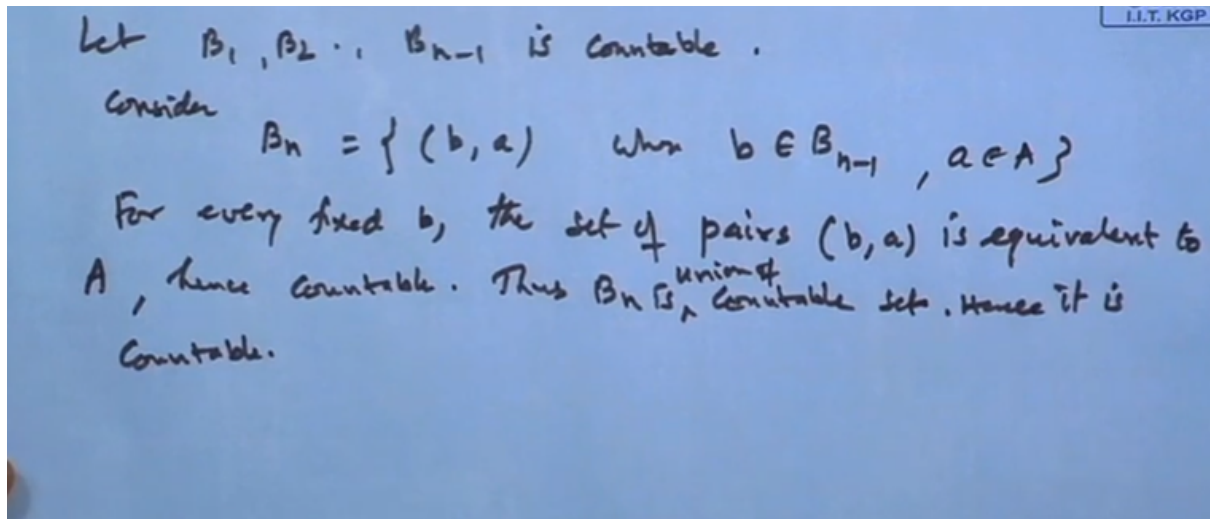 I.I.T. KGP
Let B₁, B₂ .., Bₙ₋₁ is Countable .
Consider
Bₙ = { (b, a) when b ∈ Bₙ₋₁ , a ∈ A }
For every fixed b, the set of pairs (b, a) is equivalent to
A , hence Countable. Thus Bₙ is ‸ union of Countable set . Hence it is
Countable.